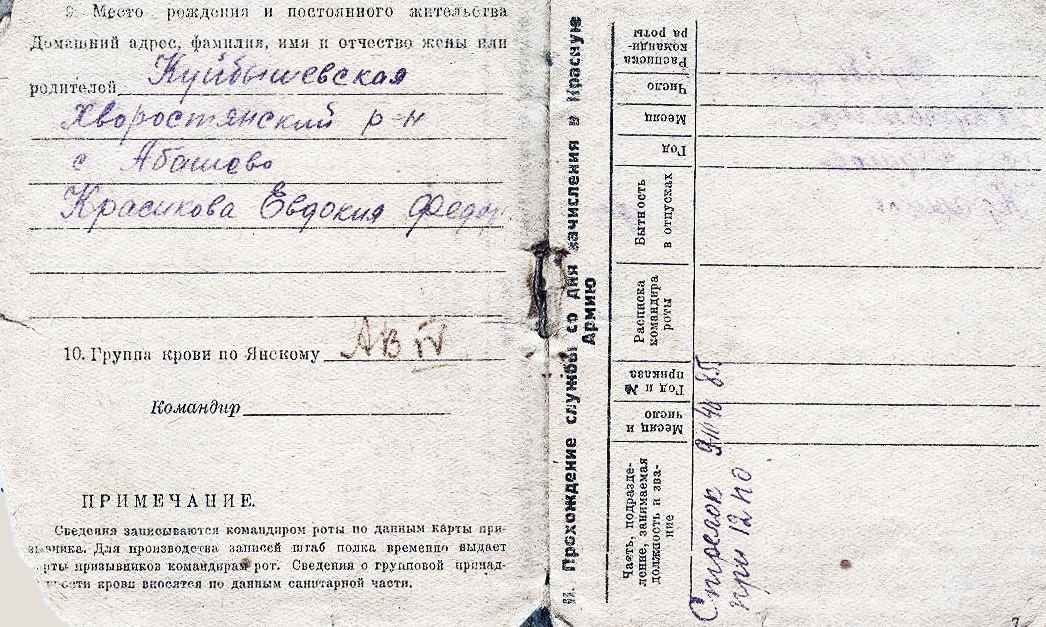 9. Место рождения и постоянного жительства
Домашний адрес, фамилия, имя и отчество жены или
родителей Куйбышевская
Хворостянский р-н
с Абашево
Красикова Евдокия Федор
10. Группа крови по Янскому АВ IV
Командир
ПРИМЕЧАНИЕ.
Сведения записываются командиром роты по данным карты при-
зывника. Для производства записей штаб полка временно выдает
карты призывников командирам рот. Сведения о групповой принад-
лежности крови вносятся по данным санитарной части.
II. Прохождение службы со дня зачисления в Красную
Армию
Часть, подразде-
ление, занимаемая
должность и зва-
ние
Месяц и
число
Год и №
приказа
Расписка
командира
роты
Бытность
в отпусках
Год
Месяц
Число
Расписка
команди-
ра роты
Стрелок
85
при 12 по